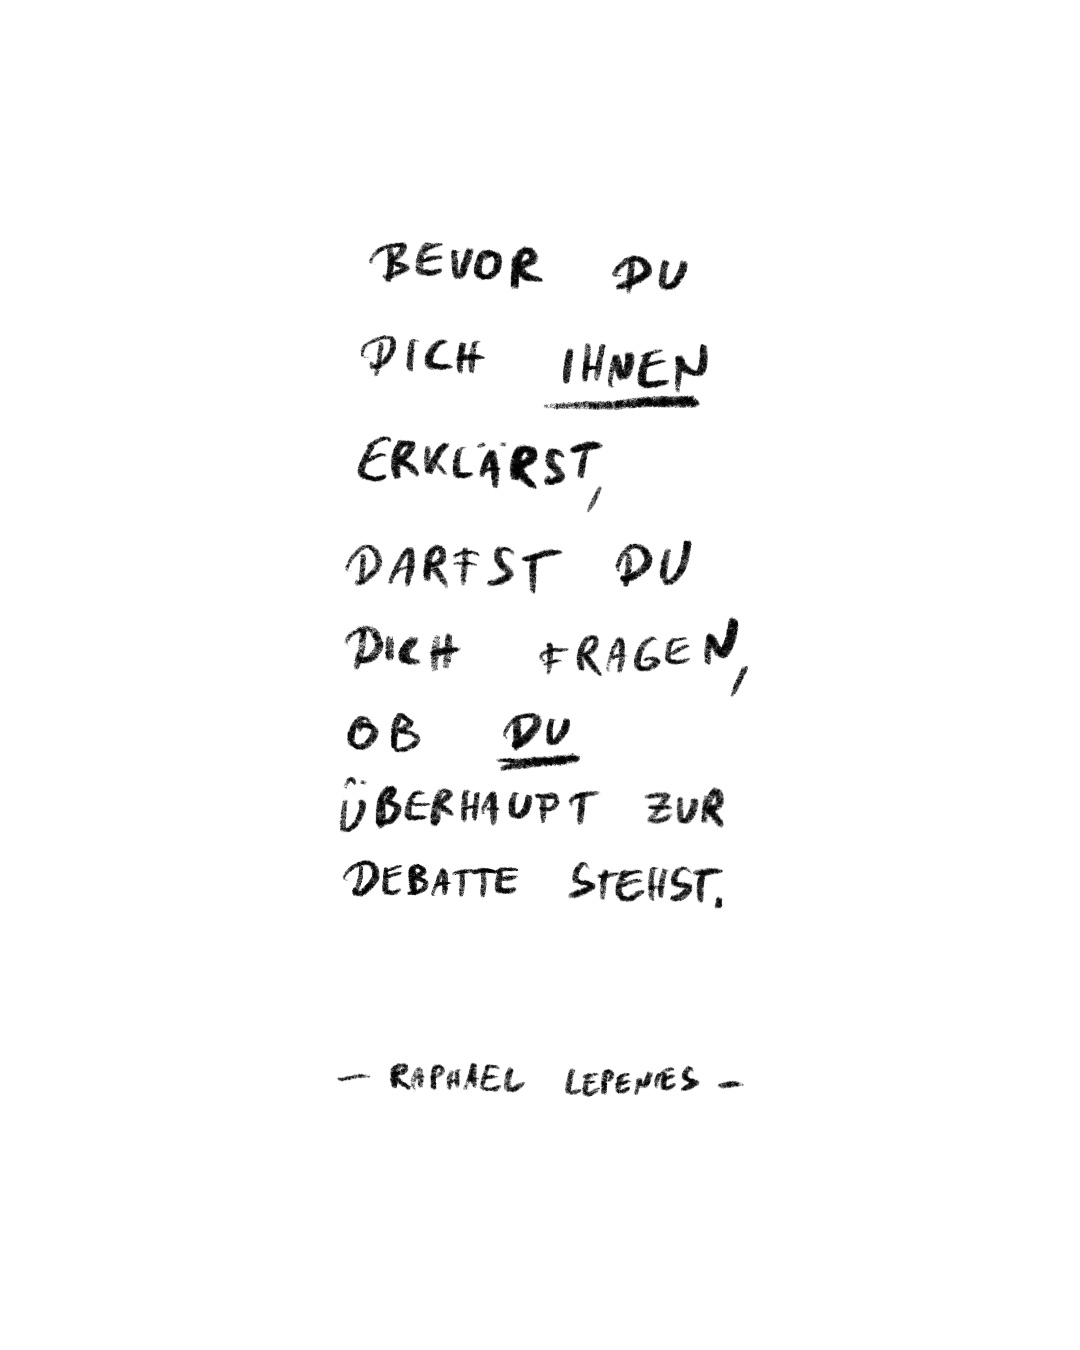 BEVOR DU
DICH IHNEN
ERKLÄRST,
DARFST DU
DICH FRAGEN,
OB DU
ÜBERHAUPT ZUR
DEBATTE STEHST.
— RAPHAEL LEPENIES —